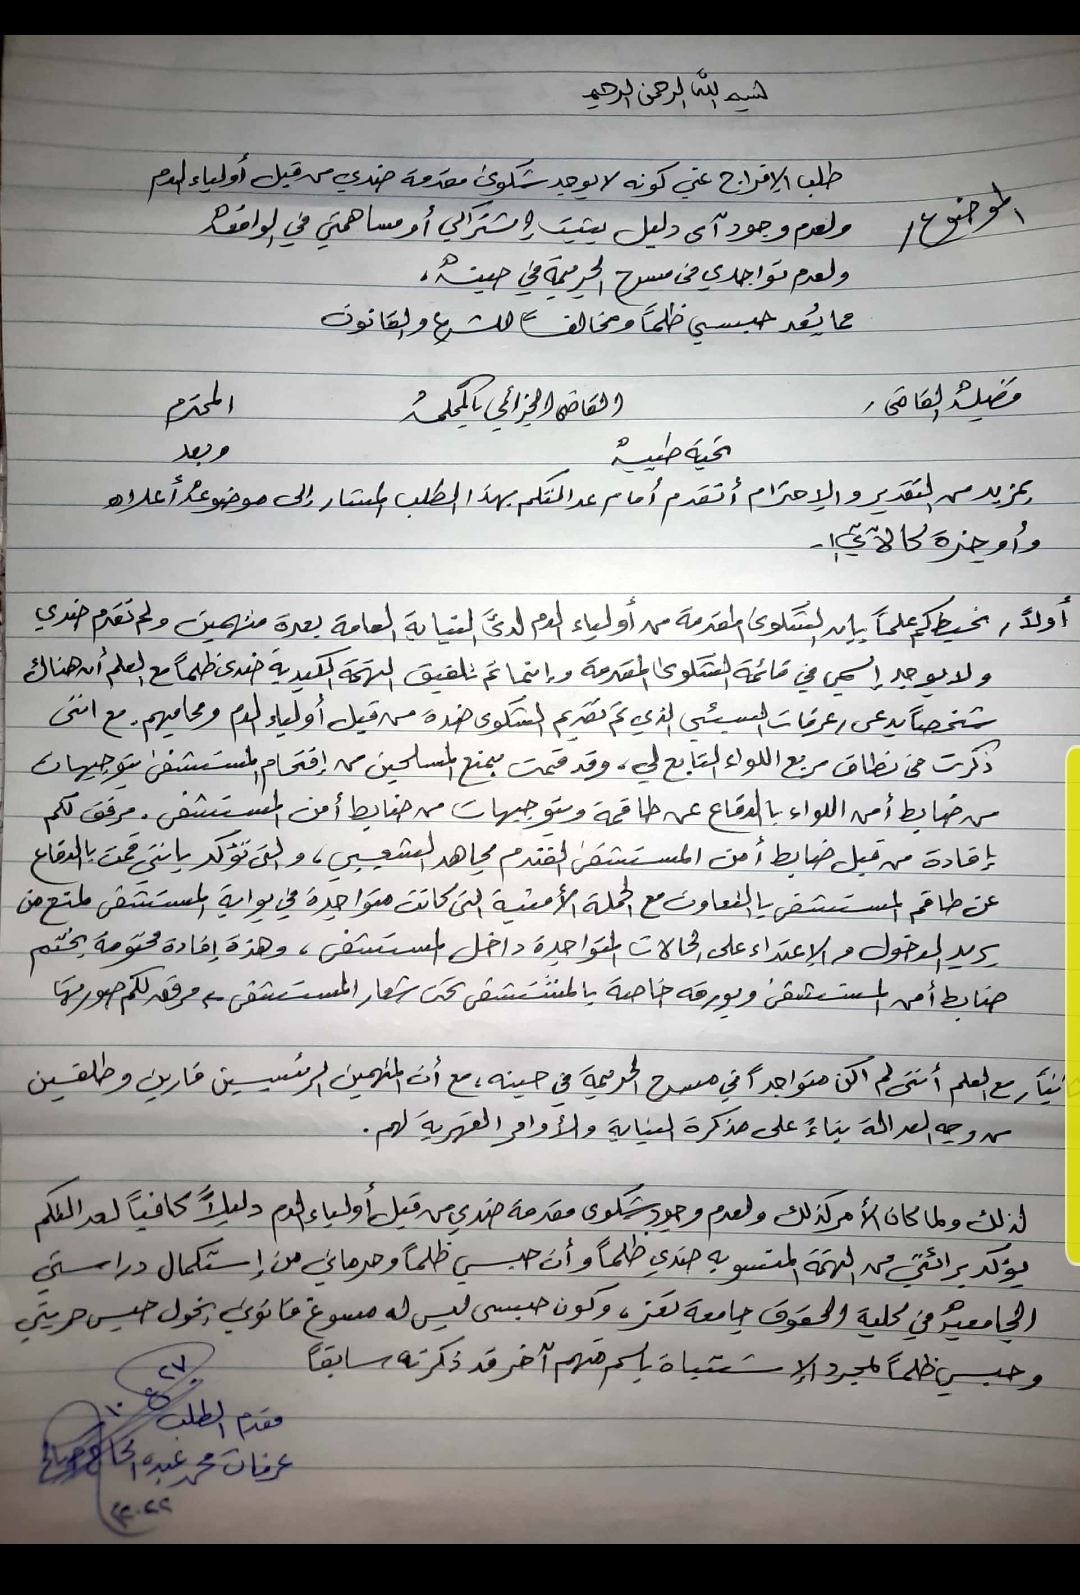 بسم الله الرحمن الرحيم
الموضوع / طلب الإفراج عني كونه لا يوجد شكوى مقدمة ضدي من قبل أولياء الدم
ولعدم وجود أي دليل يثبت إشتراكي أو مساهمتي في الواقعة
ولعدم تواجدي في مسرح الجريمة في حينه،
مما يُعد حبسي ظلماً ومخالفاً للشرع والقانون
فضيلة القاضي / القاضي الجزائي بالمحكمة المحترم
تحية طيبة وبعد
بمزيد من التقدير والإحترام أتقدم أمام عدالتكم بهذا الطلب المشار إلى موضوعة أعلاه
وأوجزة كالآتي:-
أولاً / نحيطكم علماً بإن الشكوى المقدمة من أولياء الدم لدى النيابة العامة بعدة متهمين ولم تقدم ضدي
ولا يوجد إسمي في قائمة الشكوى المقدمة وإنما تم تلفيق التهمة الكيدية ضدي ظلماً مع العلم أن هناك
شخصاً يدعى / عرفات السبئي الذي تم تقديم الشكوى ضدة من قبل أولياء الدم ومحاميهم. مع انني
ذكرت في نطاق مربع اللواء التابع لي، وقد قمت بمنع المسلحين من إقتحام المستشفى بتوجيهات
من ضابط أمن اللواء بالدفاع عن طاقمة وبتوجيهات من ضابط أمن المستشفى. مرفق لكم
إفادة من قبل ضابط أمن المستشفى الفندم مجاهد الشعيبي، والتي تؤكد بانني قمت بالدفاع
عن طاقم المستشفى بالتعاون مع الحملة الأمنية التي كانت متواجدة في بوابة المستشفى لمنع من
يريد الدخول والإعتداء على الحالات المتواجدة داخل المستشفى، وهذة إفادة مختومة بختم
ضابط أمن المستشفى وبورقه خاصة بالمستشفى تحت شعار المستشفى م مرفق لكم صور منها
ثانياً / مع العلم أنني لم اكن متواجداً في مسرح الجريمة في حينه، مع أن المتهمين الرئيسيين فارين وطلقين
من وجه العدالة بناءً على مذكرة النيابة والأوامر القهرية لهم.
لذلك ولما كان الأمر كذلك ولعدم وجود شكوى مقدمة ضدي من قبل أولياء الدم دليلاً كافياً لعدالتكم
يؤكد برائتي من التهمة المنسوبه ضدي ظلماً وأن حبسي ظلماً وحرماني من إستكمال دراستي
الجامعية في كلية الحقوق جامعة تعز، وكون حبسي ليس له مسوغ قانوني يخول حبس حريتي
وحبسي ظلماً لمجرد الإشتباة باسم متهم آخر قد ذكرته سابقاً
مقدم الطلب
عرفات محمد عبده الحاج صالح